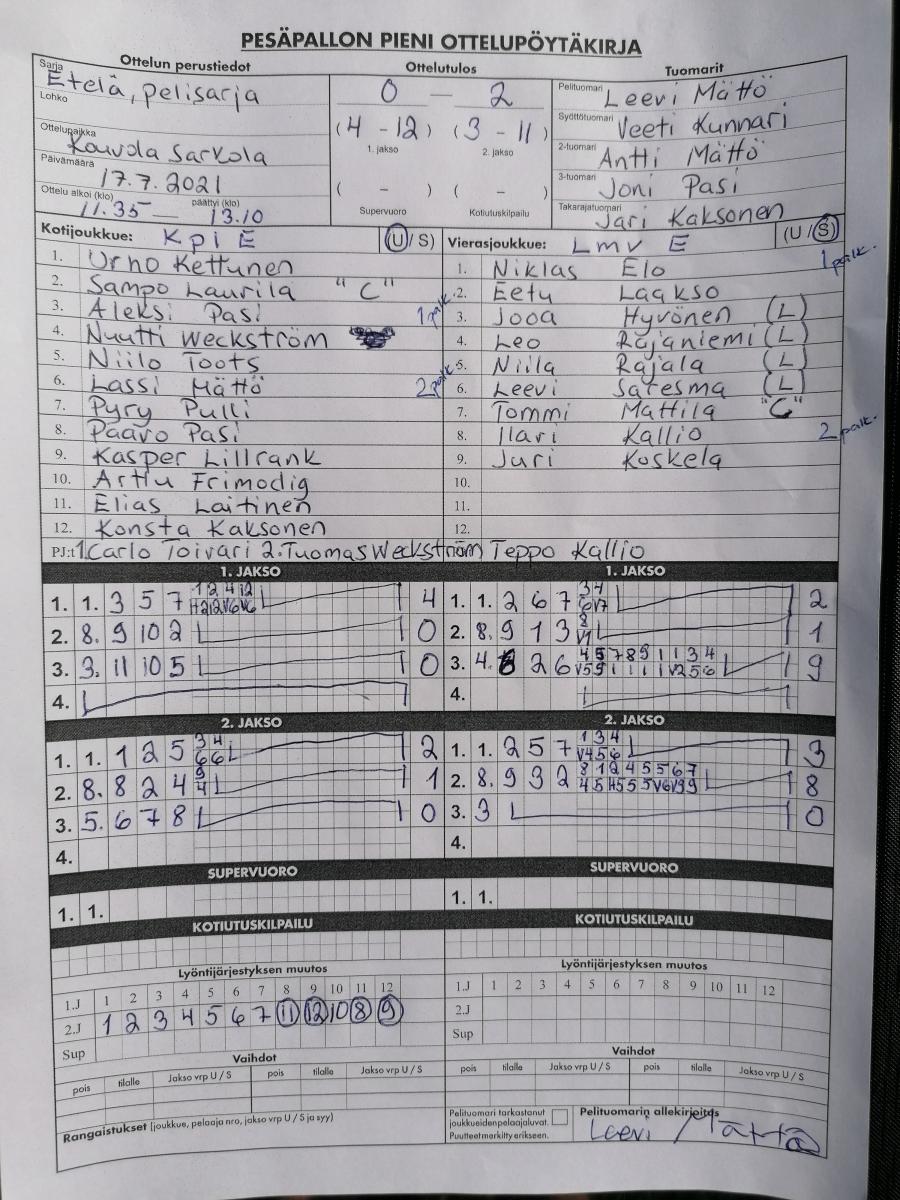 PESÄPALLON PIENI OTTELUPÖYTÄKIRJA
Ottelun perustiedot
Sarja
Etelä, pelisarja
Lohko
Ottelupaikka
Kouvola Sarkola
Päivämäärä
17.7.2021
Ottelu alkoi (klo) päättyi (klo)
11.35 — 13.10
Ottelutulos
0 — 2
(4 - 12) (3 - 11)
1. jakso 2. jakso
( - ) ( - )
Supervuoro Kotiutuskilpailu
Tuomarit
Pelituomari Leevi Mättö
Syöttötuomari Veeti Kunnari
2-tuomari Antti Mättö
3-tuomari Joni Pasi
Takarajatuomari Jari Kaksonen
Kotijoukkue: Kpl E (U/S)
1. Urho Kettunen
2. Sampo Laurila "C"
3. Aleksi Pasi 1 palk.
4. Nuutti Weckström
5. Niilo Toots
6. Lassi Mättö 2 palk.
7. Pyry Pulli
8. Paavo Pasi
9. Kasper Lillrank
10. Arttu Frimodig
11. Elias Laitinen
12. Konsta Kaksonen
Vierasjoukkue: Lmv E (U/S)
1. Niklas Elo 1 palk.
2. Eetu Laakso
3. Jooa Hyvönen (L)
4. Leo Rajaniemi (L)
5. Niila Rajala (L)
6. Leevi Satesma (L)
7. Tommi Mattila "C"
8. Ilari Kallio 2 palk.
9. Juri Koskela
10.
11.
12.
PJ:t 1. Carlo Toivari 2. Tuomas Weckström Teppo Kallio
1. JAKSO
1. 1. 3 5 7 4
2. 8. 9 10 2 0
3. 3. 11 10 5 0
4.
1. JAKSO
1. 1. 2 6 7 2
2. 8. 9 1 3 1
3. 4. 2 6 9
4.
2. JAKSO
1. 1. 1 2 5 2
2. 8. 8 2 4 1
3. 5. 6 7 8 0
4.
2. JAKSO
1. 1. 2 5 7 3
2. 8. 9 3 2 8
3. 3 0
4.
SUPERVUORO
1. 1.
SUPERVUORO
1. 1.
KOTIUTUSKILPAILU
KOTIUTUSKILPAILU
Lyöntijärjestyksen muutos
1.J 1 2 3 4 5 6 7 8 9 10 11 12
2.J 1 2 3 4 5 6 7 11 12 10 8 9
Sup
Lyöntijärjestyksen muutos
1.J 1 2 3 4 5 6 7 8 9 10 11 12
2.J
Sup
Vaihdot
pois tilalle Jakso vrp U / S pois tilalle Jakso vrp U / S
Vaihdot
pois tilalle Jakso vrp U / S pois tilalle Jakso vrp U / S
Rangaistukset (joukkue, pelaaja nro, jakso vrp U / S ja syy)
Pelituomari tarkastanut
joukkueiden pelaajaluvat.
Puutteet merkitty erikseen.
Pelituomarin allekirjoitus
Leevi Mättö